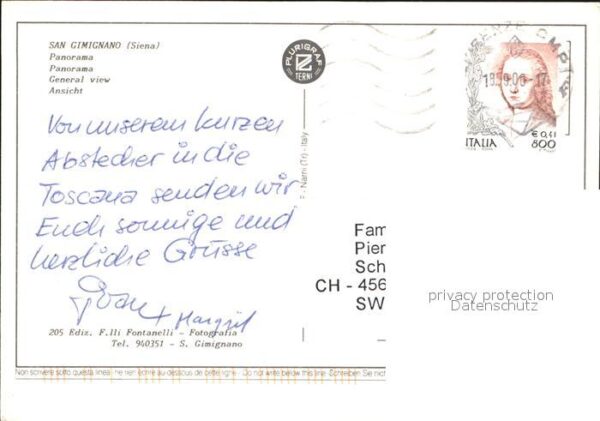 SAN GIMIGNANO (Siena)
Panorama
Panorama
General view
Ansicht
PLURIGRAF
TERNI
18.9.00-17
€ 0,41
ITALIA 800
Von unserem kurzen
Abstecher in die
Toscana senden wir
Euch sonnige und
herzliche Grüsse
+ Margrit
- Narni (Tr) - Italy
Fam
Pier
Sch
CH - 456
SW
privacy protection
Datenschutz
205 Ediz. F.lli Fontanelli - Fotografia
Tel. 940351 - S. Gimignano
Non scrivere sotto questa linea/ne rien écrire au-dessous de cette ligne - Do not write below this line - Schreiben Sie nicht